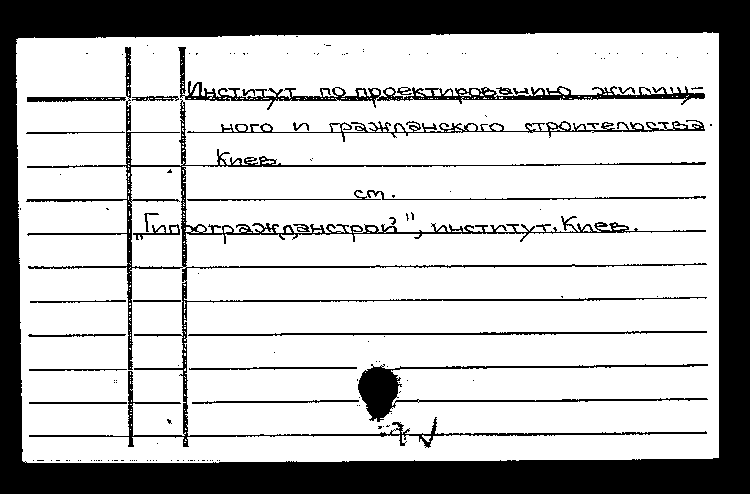 Институт по проектированию жилищ-
ного и гражданского строительства.
Киев.
см.
"Гипрогражданстрой", институт. Киев.